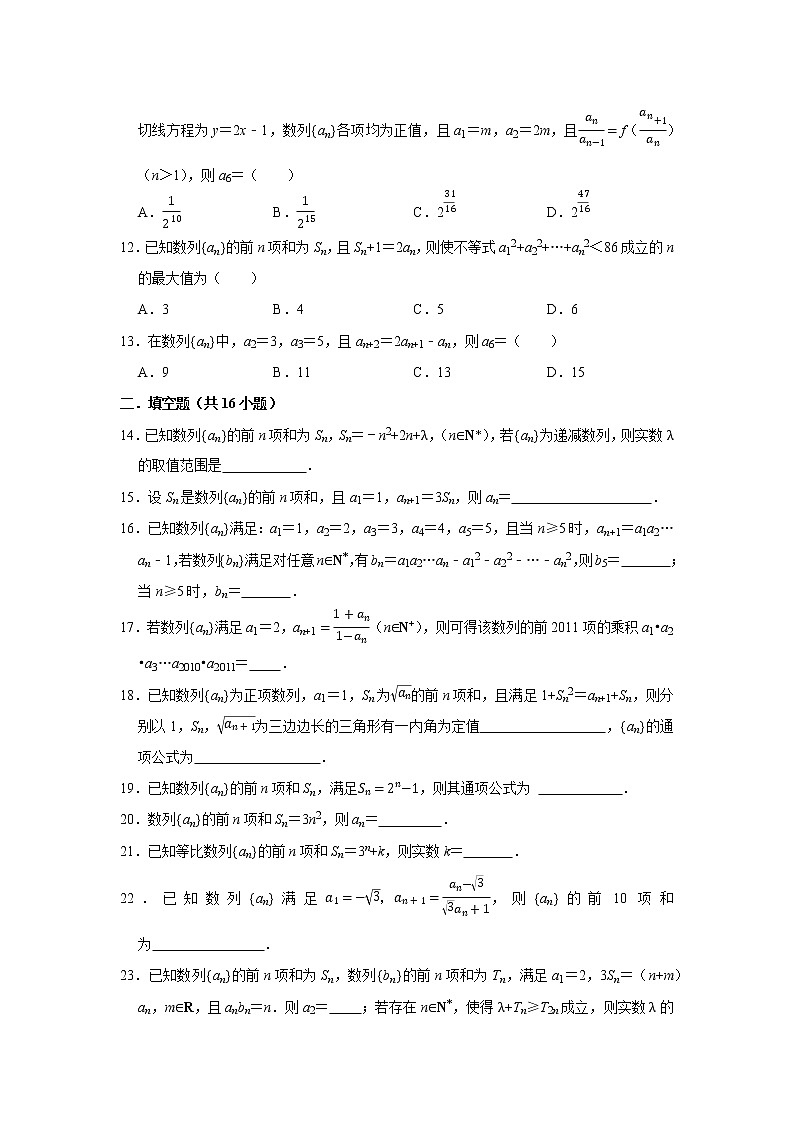 切线方程为 y＝2x﹣1，数列{an}各项均为正值，且 a1＝m，a2＝2m，且$\frac{a_n}{a_{n-1}}=f$（$\frac{a_{n+1}}{a_n}$）
（n＞1），则 a6＝（　　）
A．$\frac{1}{2^{10}}$　B．$\frac{1}{2^{15}}$　C．$2^{\frac{31}{16}}$　D．$2^{\frac{47}{16}}$
12．已知数列{an}的前 n 项和为 Sn，且 Sn+1＝2an，则使不等式 a1²+a2²+…+an²＜86 成立的 n
的最大值为（　　）
A．3　B．4　C．5　D．6
13．在数列{an}中，a2＝3，a3＝5，且 an+2＝2an+1﹣an，则 a6＝（　　）
A．9　B．11　C．13　D．15
二．填空题（共 16 小题）
14．已知数列{an}的前 n 项和为 Sn，Sn＝﹣n²+2n+λ，（n∈N*），若{an}为递减数列，则实数 λ
的取值范围是　　　．
15．设 Sn 是数列{an}的前 n 项和，且 a1＝1，an+1＝3Sn，则 an＝　　　．
16．已知数列{an}满足：a1＝1，a2＝2，a3＝3，a4＝4，a5＝5，且当 n≥5 时，an+1＝a1a2…
an﹣1，若数列{bn}满足对任意 n∈N*，有 bn＝a1a2…an﹣a1²﹣a2²﹣…﹣an²，则 b5＝　　　；
当 n≥5 时，bn＝　　　．
17．若数列{an}满足 a1＝2，$a_{n+1}=\frac{1+a_n}{1-a_n}$（n∈N⁺），则可得该数列的前 2011 项的乘积 a1•a2
•a3…a2010•a2011＝　　　．
18．已知数列{an}为正项数列，a1＝1，Sn 为$\sqrt{a_n}$的前 n 项和，且满足 1+Sn²＝an+1+Sn，则分
别以 1，Sn，$\sqrt{a_{n+1}}$为三边边长的三角形有一内角为定值　　　，{an}的通
项公式为　　　．
19．已知数列{an}的前 n 项和 Sn，满足$S_n=2^n-1$，则其通项公式为　　　．
20．数列{an}的前 n 项和 Sn＝3n²，则 an＝　　　．
21．已知等比数列{an}的前 n 项和 Sn＝3ⁿ+k，则实数 k＝　　　．
22．已知数列{an}满足$a_1=-\sqrt{3}$，$a_{n+1}=\frac{a_n-\sqrt{3}}{\sqrt{3}a_n+1}$，则{an}的前 10 项和
为　　　．
23．已知数列{an}的前 n 项和为 Sn，数列{bn}的前 n 项和为 Tn，满足 a1＝2，3Sn＝（n+m）
an，m∈R，且 anbn＝n．则 a2＝　　　；若存在 n∈N*，使得 λ+Tn≥T2n 成立，则实数 λ 的